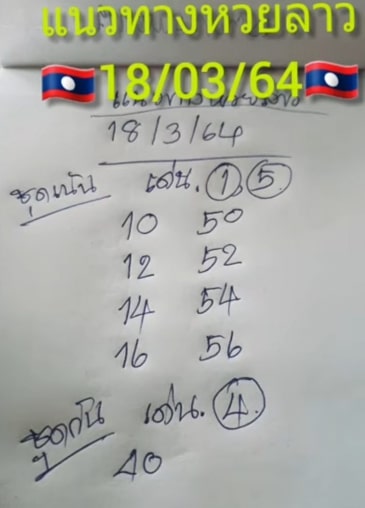 แนวทางหวยลาว
18/03/64
18/3/64
ชุดเน้น เด่น. 1, 5
10 50
12 52
14 54
16 56
ชุดกัน เด่น. 4.
40